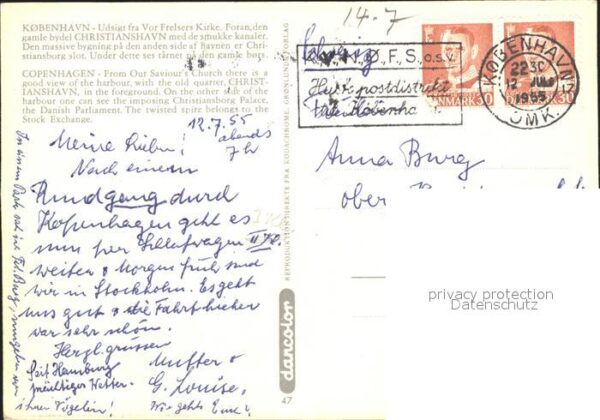 14.7
KØBENHAVN - Udsigt fra Vor Frelsers Kirke. Foran, den
gamle bydel CHRISTIANSHAVN med de smukke kanaler.
Den massive bygning på den anden side af havnen er Chri-
stiansborg slot. Under dette ses tårnet på den gamle børs.
COPENHAGEN - From Our Saviour's Church there is a
good view of the harbour, with the old quarter, CHRIST-
IANSHAVN, in the foreground. On the other side of the
harbour one can see the imposing Christiansborg Palace,
the Danish Parliament. The twisted spire belongs to the
Stock Exchange.
12.7.55
abends
7 hr
Meine Lieben!
Nach einem
Rundgang durch
Kopenhagen geht es
nun per Schlafwagen II Kl.
weiter & Morgen früh sind
wir in Stockholm. Es geht
uns gut & die Fahrt bisher
war sehr schön.
Herzl. grüssen
Mutter &
G. Louise,
Seit Hamburg
mächtiges Wetter.
Wie gehts Euch?
ihren Vögelein!
REPRODUKTION DIREKTE FRA KODACHROME, GRØNLUNDS FORLAG
dancolor
47
V. N. Ø. F. S. o.s.v.
Husk postdistrikt
København
DANMARK 30
DANMARK 30
KØBENHAVN 17
22 30
12 JULI
1955
OMK.
Anna Burg
ober
privacy protection
Datenschutz